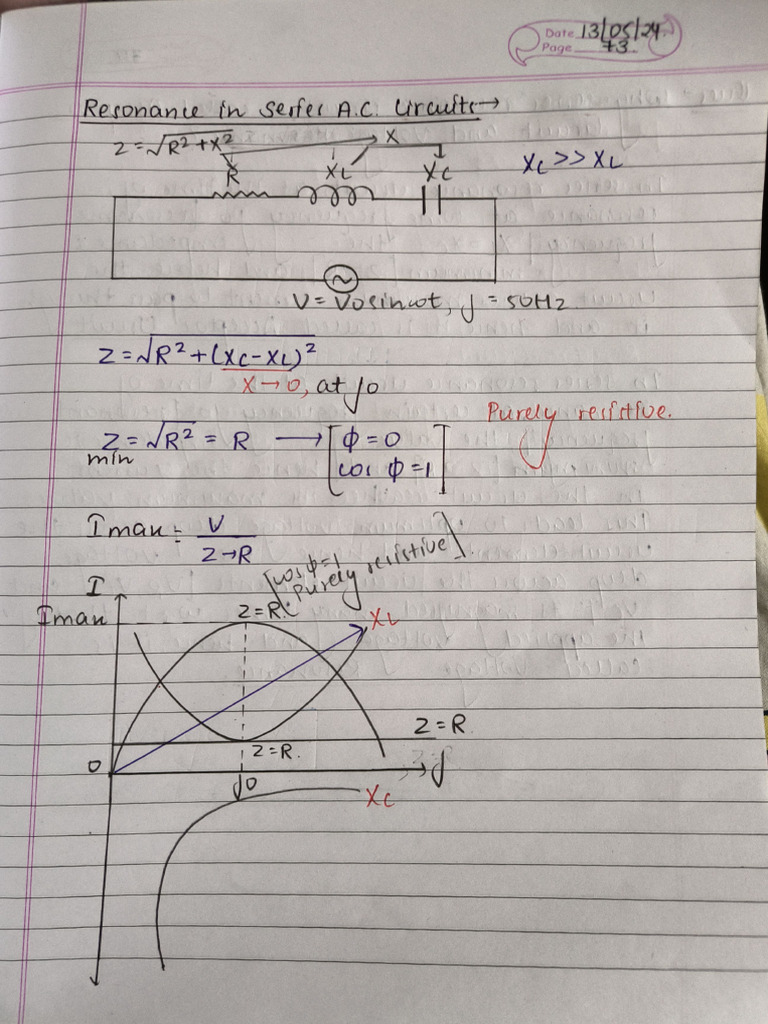 Date 13/05/24
Page 73
Resonance in series A.C. Circuits→
Z=√R²+X² → X
R XL XC XC >> XL
V= Vosinωt, f = 50Hz
Z=√R²+(XC-XL)²
X→0, at fo
Purely resistive.
Z=√R² = R → [φ=0
min cos φ=1]
Imax = V
Z→R
[cos φ=1
Purely resistive].
I
Imax
Z=R.
XL
Z=R
Z=R.
0
f
fo
XC